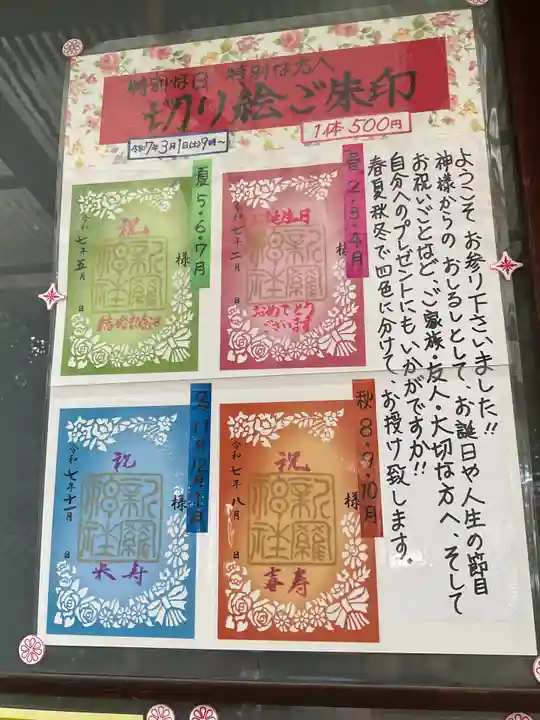 特別な日 特別な方へ
切り絵ご朱印
令和7年3月1日(土)9時〜
1体 500円
ようこそ お参り下さいました!!
神様からの おしるしとして、お誕日や人生の節目
お祝いごとなど、ご家族・友人・大切な方へ、そして
自分へのプレゼントにも いかがですか!!
春夏秋冬で四色に分けて、お授け致します。
春 2・3・4月
お誕生日
様
新羅神社
令和七年二月 日
おめでとう
ございます
夏 5・6・7月
祝
様
新羅神社
令和七年五月 日
結婚記念日
秋 8・9・10月
祝
様
新羅神社
令和七年八月 日
喜寿
冬 11月・12月・1月
祝
様
新羅神社
令和七年十一月 日
米寿